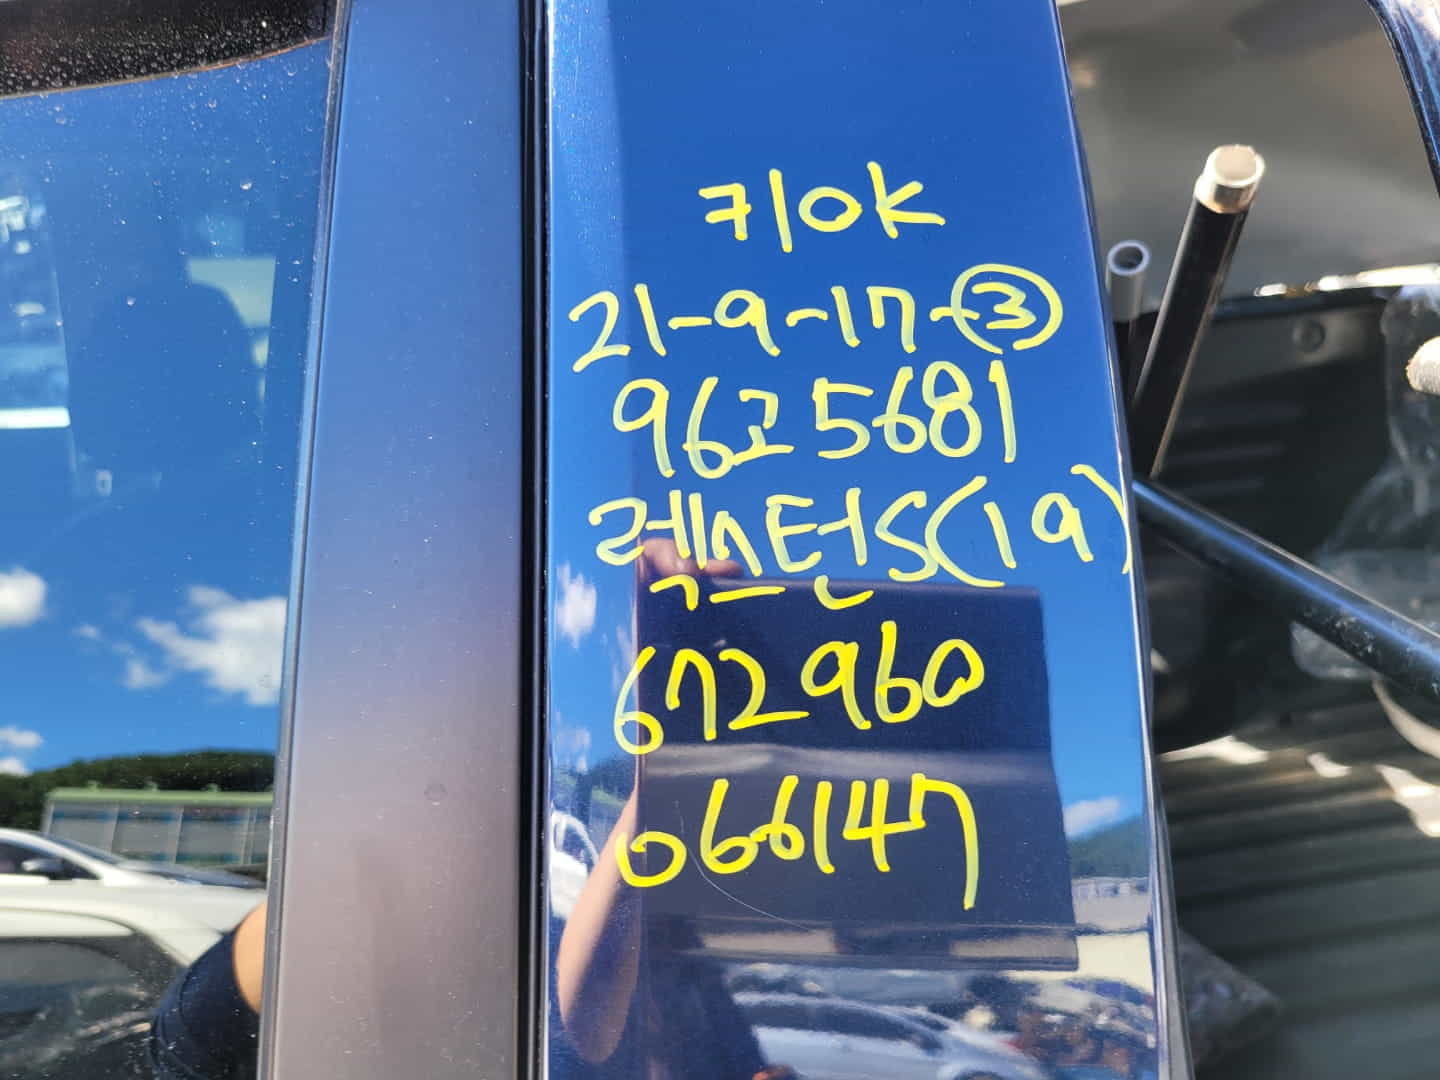 710K
21-9-17-③
96고5681
렉스턴S(19)
672960
066147